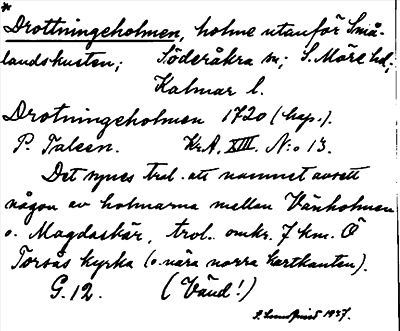 *
Drottningeholmen, holme utanför Små-
landskusten; Söderåkra sn; S. Möre hd;
Kalmar l.
Drotningeholmen 1720 (kap.).
P. Taleen. Kr.A. XIII. N:o 13.
Det synes trol. att namnet avsett
någon av holmarna mellan Vänholmen
o. Magdaskär, trol. omkr. 7 km. Ö
Torsås kyrka (o. nära norra kartkanten).
G. 12. (Vänd!)
1937.